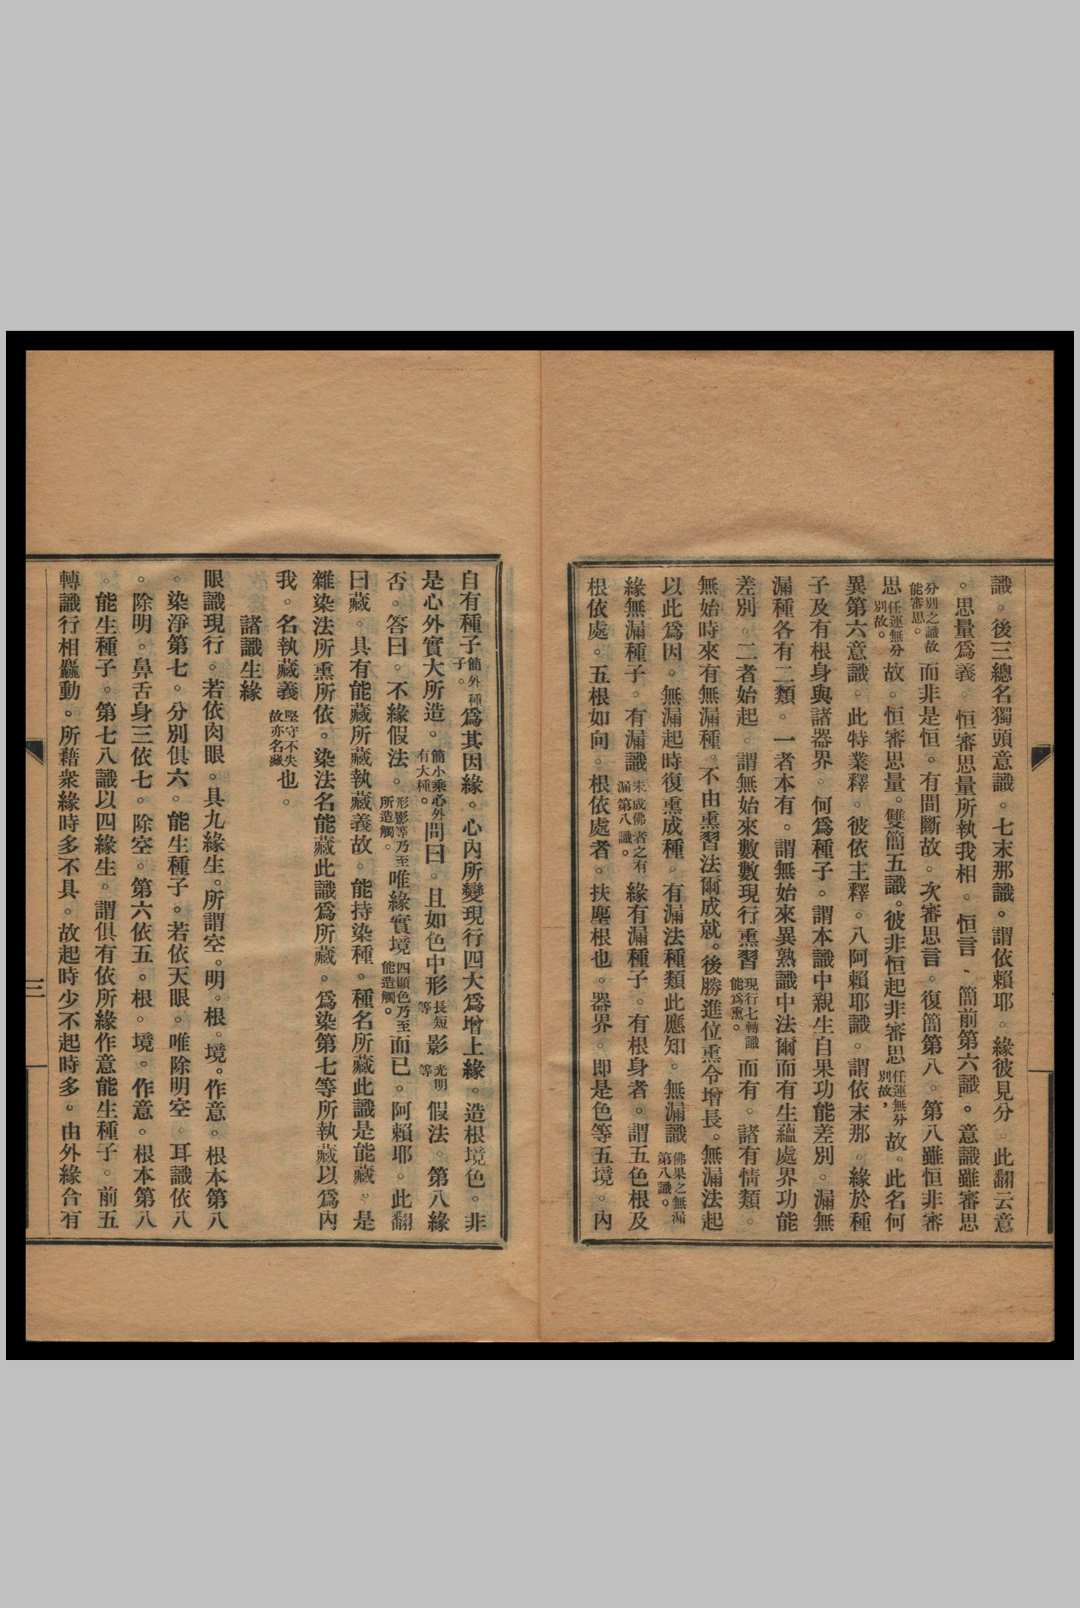 識。後三總名獨頭意識。七末那識。謂依賴耶。緣彼見分。此翻云意
。思量爲義。恒審思量所執我相。恒言、簡前第六識。意識雖審思
分別之識故能審思。而非是恒。有間斷故。次審思言。復簡第八。第八雖恒非審
思任運無分別故。故。恒審思量。雙簡五識。彼非恒起非審思任運無分別故，故。此名何
異第六意識。此特業釋。彼依主釋。八阿賴耶識。謂依末那。緣於種
子及有根身與諸器界。何爲種子。謂本識中親生自果功能差別。漏無
漏種各有二類。一者本有。謂無始來異熟識中法爾而有生蘊處界功能
差別。二者始起。謂無始來數數現行熏習現行七轉識能爲熏。而有。諸有情類。
無始時來有無漏種。不由熏習法爾成就。後勝進位熏令增長。無漏法起
以此爲因。無漏起時復熏成種。有漏法種類此應知。無漏識佛果之無漏第八識。
緣無漏種子。有漏識未成佛者之有漏第八識。緣有漏種子。有根身者。謂五色根及
根依處。五根如向。根依處者。扶塵根也。器界。即是色等五境。內
自有種子簡外種子。爲其因緣。心內所變現行四大爲增上緣。造根境色。非
是心外實大所造。簡小乘心外有大種。問曰。且如色中形長短等影光明等假法。第八緣
否。答曰。不緣假法。形影等乃至所造觸。唯緣實境四顯色乃至能造觸。而已。阿賴耶。此翻
曰藏。具有能藏所藏執藏義故。能持染種。種名所藏此識是能藏。是
雜染法所熏所依。染法名能藏此識爲所藏。爲染第七等所執藏以爲內
我。名執藏義堅守不失故亦名藏也。
諸識生緣
眼識現行。若依肉眼。具九緣生。所謂空。明。根。境。作意。根本第八
。染淨第七。分別俱六。能生種子。若依天眼。唯除明空。耳識依八
。除明。鼻舌身三依七。除空。第六依五。根。境。作意。根本第八
。能生種子。第七八識以四緣生。謂俱有依所緣作意能生種子。前五
轉識行相麤動。所藉衆緣時多不具。故起時少不起時多。由外緣合有
三